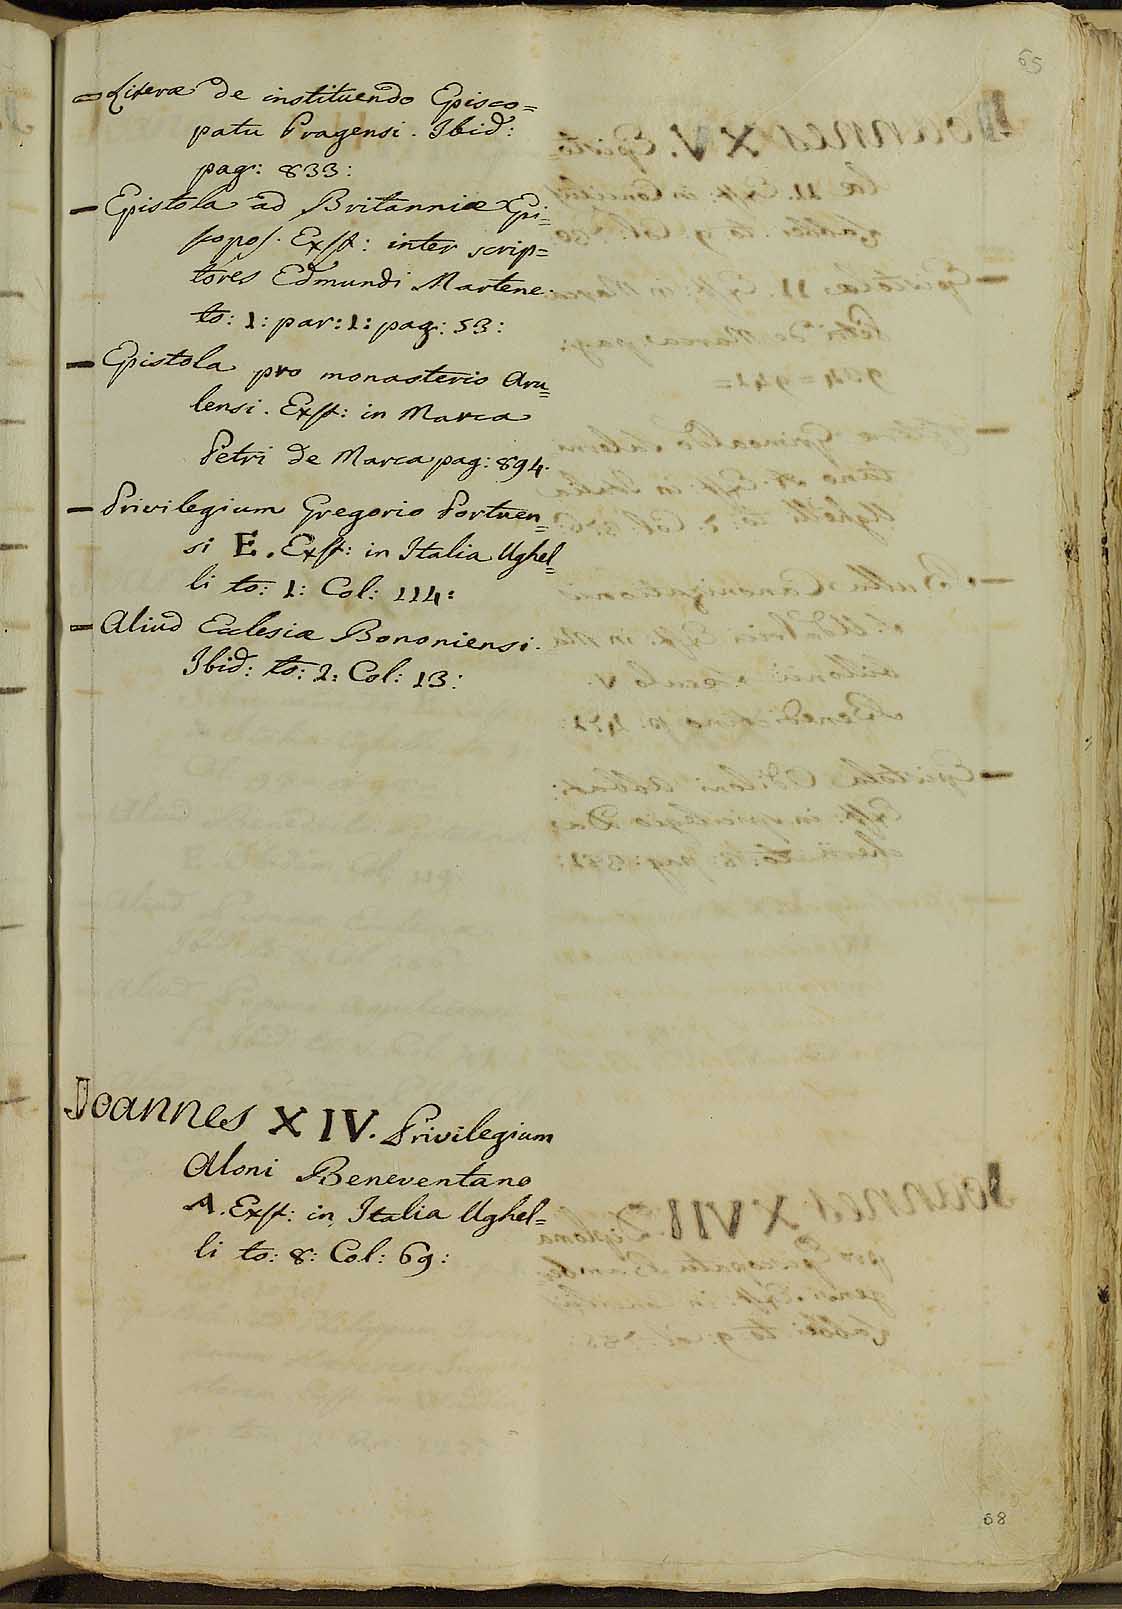 65
— Literæ de instituendo Episco=
patu Pragensi. Ibid:
pag: 833:
— Epistola ad Britanniæ Epi=
scopos. Exst: inter scrip=
tores Edmundi Martene
to: 1: par: 1: pag: 53:
— Epistola pro monasterio Aru=
lensi. Exst: in Marca
Petri de Marca pag: 894.
— Privilegium Gregorio Portuen=
si E. Exst: in Italia Ughel=
li to: 1: Col: 114:
— Aliud Eclesiæ Bononiensi.
Ibid: to: 2: Col: 13:
Joannes XIV. Privilegium
Aloni Beneventano
A. Exst: in Italia Ughel=
li to: 8: Col: 69:
68